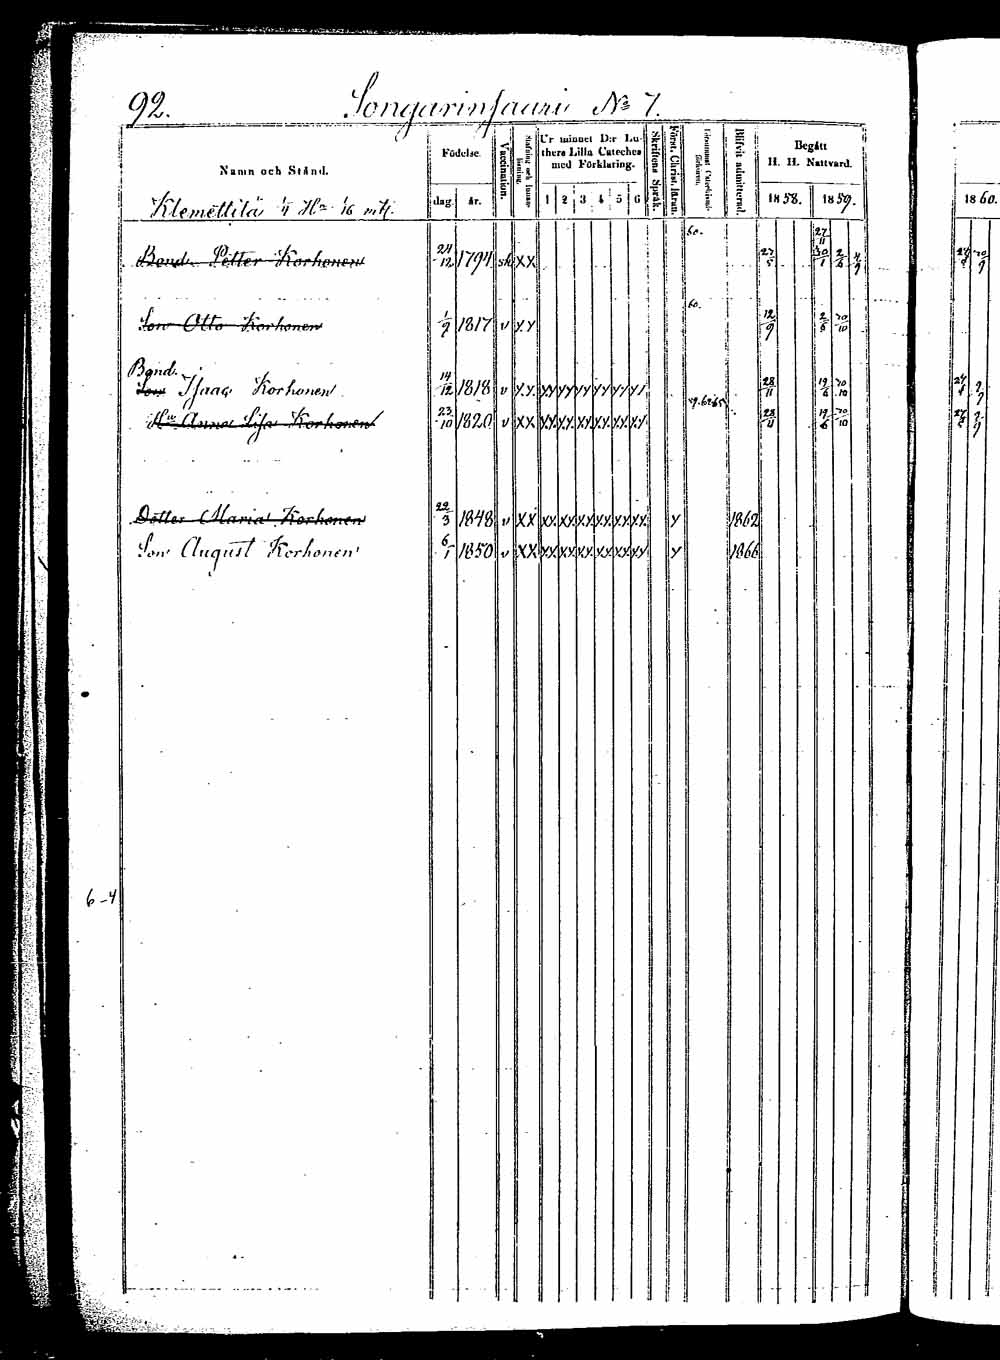 92. Songarinsaari No 7.
Namn och Stånd. Födelse. Vaccination. Ur minnet D:r Luthers Lilla Cateches med Förklaring. Skriftens Språk. Först. Christ. läran. Blifvit admitterad. Begått H. H. Nattvard.
Klemettilä dag. år. 1 2 3 4 5 6 1858. 1859. 1860.
60. 27/11
Bond. Petter Korhonen 24/12 1794 sk XX 27/5 30/1 2/6 4/9
60.
Son Otto Korhonen 1/9 1817 v XX 12/9 2/6 20/10
Bond.
Son Isaac Korhonen 14/12 1818 v XX XX XX XX XX XX XX 28/11 19/6 20/10
Hu Anna Lisa Korhonen 23/10 1820 v XX XX XX XX XX XX XX 28/11 19/6 20/10
Dotter Maria Korhonen 22/3 1848 v XX XX XX XX XX XX XX y 1862
Son August Korhonen 6/1 1850 v XX XX XX XX XX XX XX y 1866
6-4